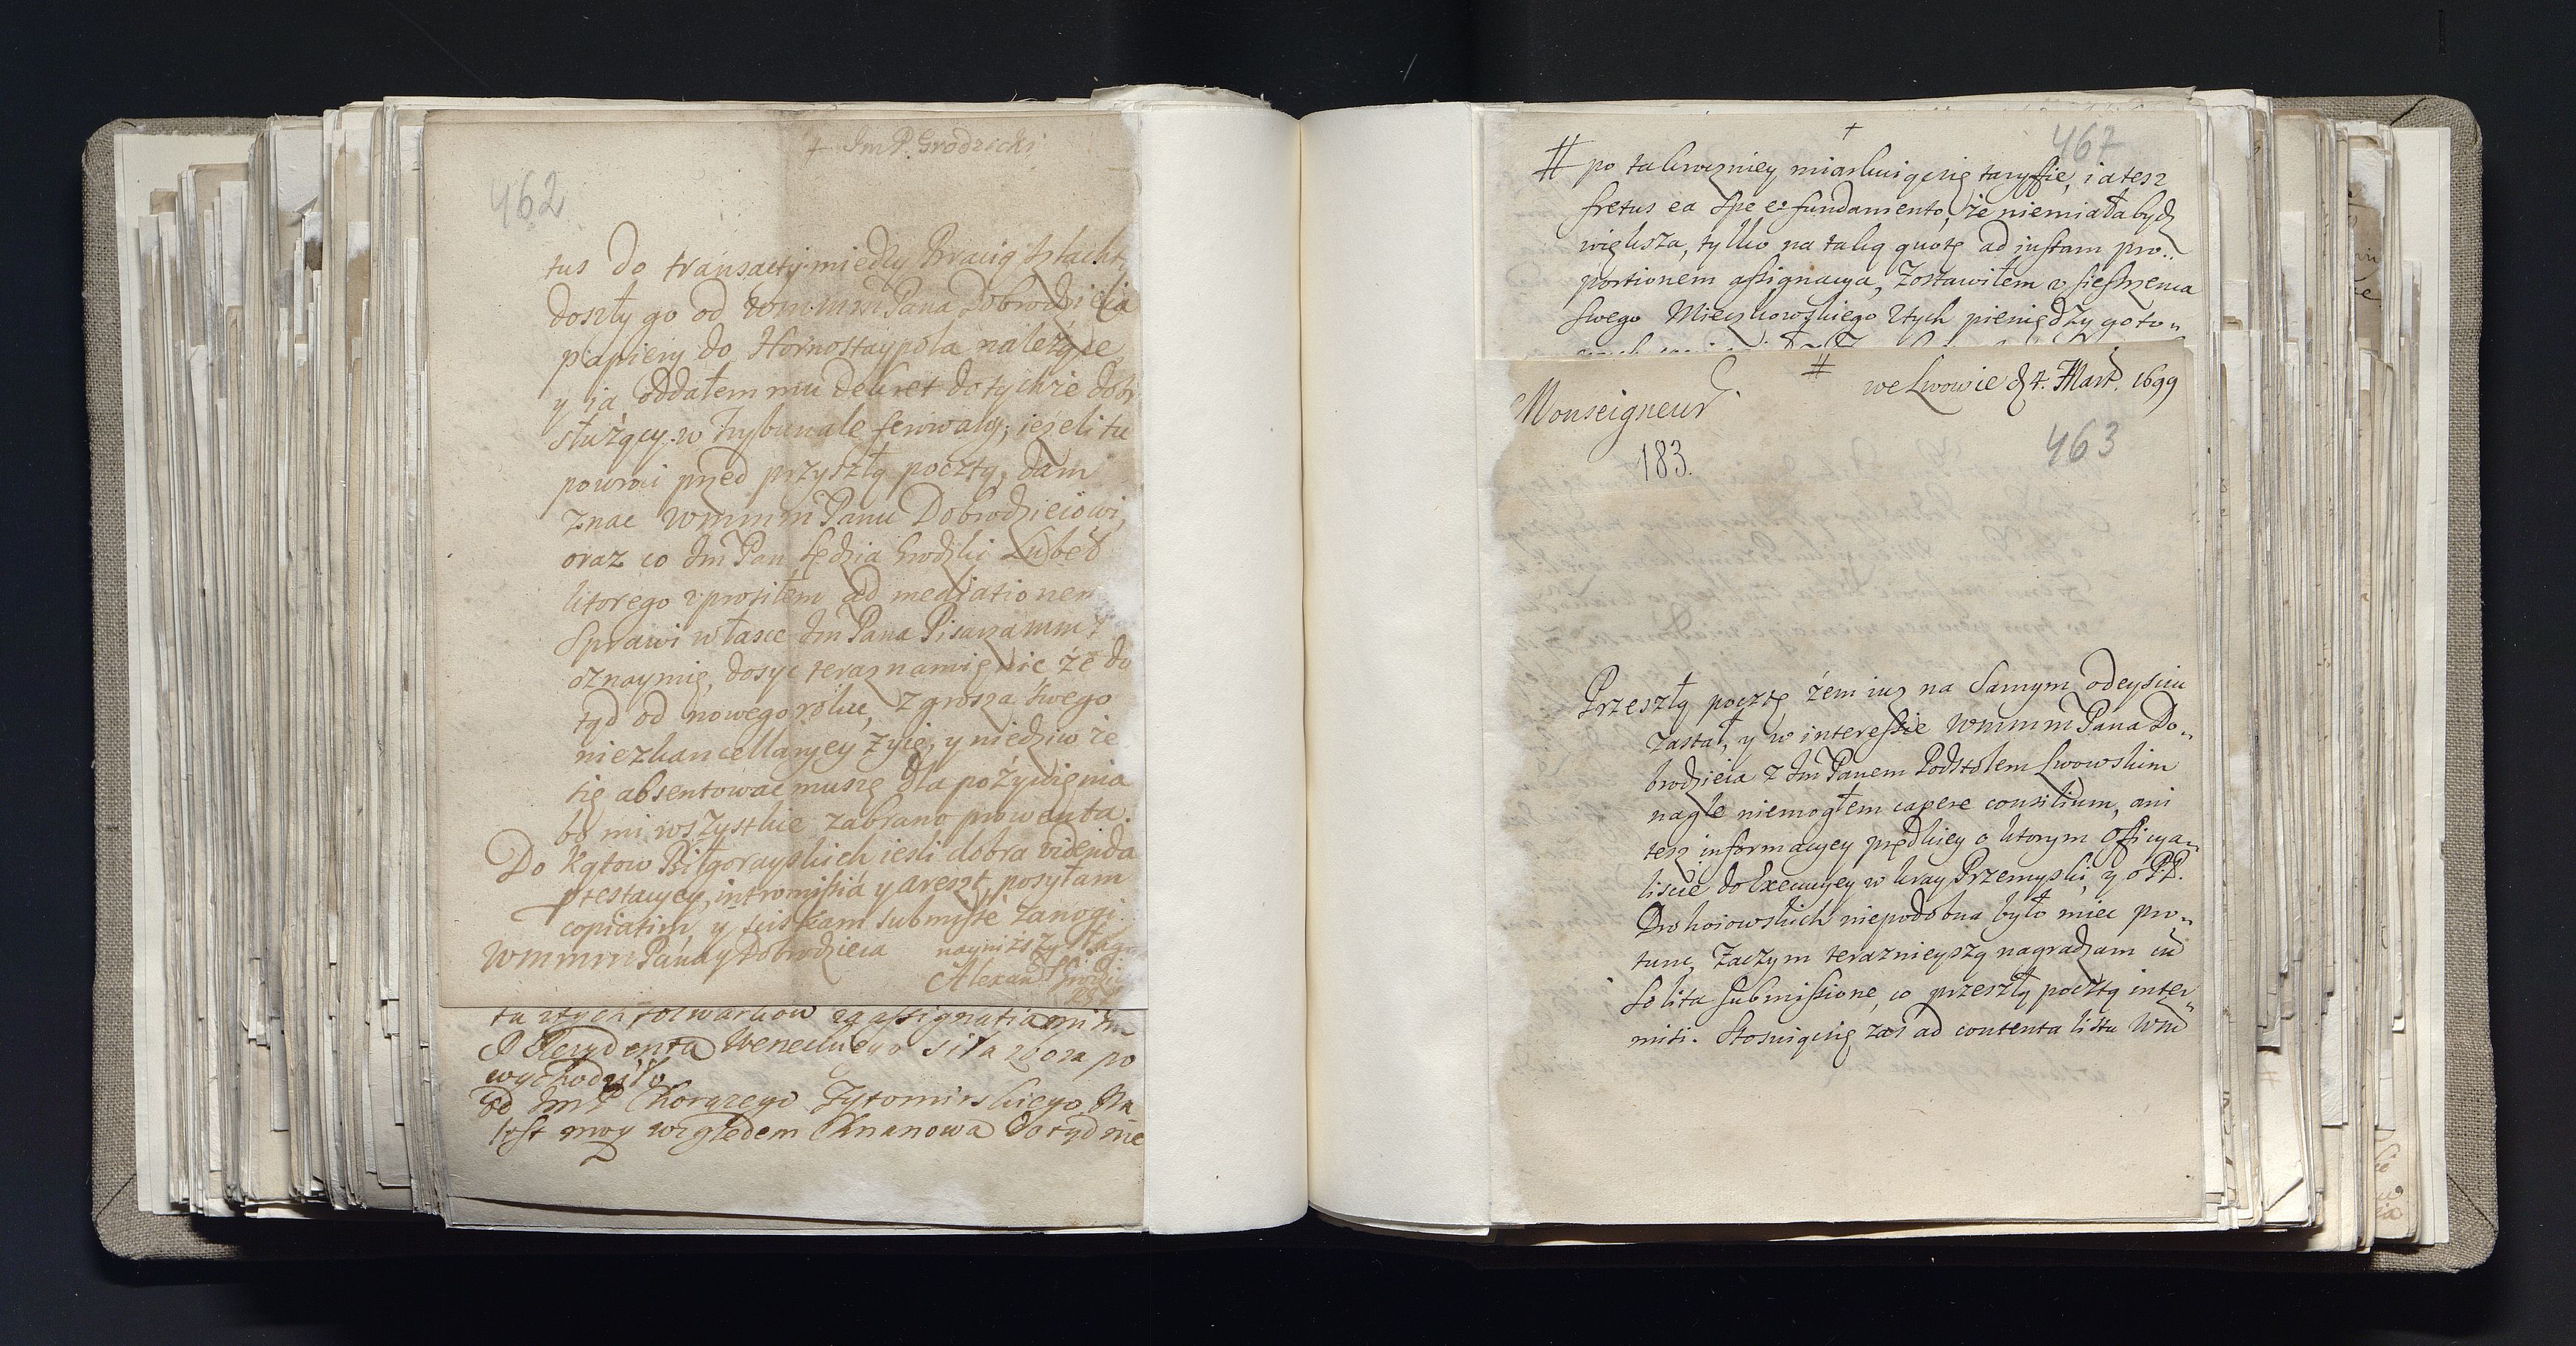 + Jm P. Grodzicki
462
tus do transactÿ między Bracią szlacht.
doszły go od wmmm Pana Dobrodzieia
papiery do Hornostaypola należące,
y ia oddałem mu dekret do tychże dobr
służący w Trybunale ferowany; ieżeli tu
powroci przed przyszłą pocztą, dam
znac Wmmm Panu Dobrodzieiowi,
oraz co Jm Pan Sędzia Grodzki
ktorego uprosiłem ad mediationem
sprawi w łasce Jm Pana Pisarza mm
oznaymię, dosyc teraz namięnic że do
tąd od nowego roku, z grosza swego
niezkancellaryey żyię, y niedziw że
się absentowac muszę dla pożywięnia
bo mi wszystkie zabrano prowenta.
Do Kątow Biłgorayskich iesli dobra
prestacyey, intromissia y areszt, posyłam
copiatim, y sciskam submisse za nogi
Wmmm Pana y Dobrodzieia nayniższy sługa
Alexand Grodzic
ta z tych folwarkow za assignatiami Jm
P Rezydenta Weneckiego siła zboza po
wychodziło
od Jm P Chorązego Zytomirskiego na
list moy względem Chnanowa dotąd nie
+
467
# po takwezniey miarkuiącsię taryffie, ia tesz
fretus ea spe et fundamento, że niemiała bydz
większa, tylko na taką quotę ad iustam pro..
portionem assignacya, zostawiłem u siestrzenca
swego Mieczkowskiego z tych pieniędzy goto..
Monseigneur.
# we Lwowie d 4. Mart. 1699
183.
463
Przeszłą pocztę żem iuz na samym odeysciu
zastał, y w interessie Wmmm Pana Do..
brodzieia z Jm Panem Podstolem Lwowskim
nagle niemogłem capere consilium, ani
tesz informacyey prędkiey o ktorym Officya..
liscie do Execucyey w kray Przemyski, y o PP.
Drohoiowskich niepodobna było miec pro..
tunc, zaczym teraznieyszą nagradzam cu
solita submissione, co przeszłą pocztą inter..
misi. Stosuiącsię zas ad contenta listu Wm